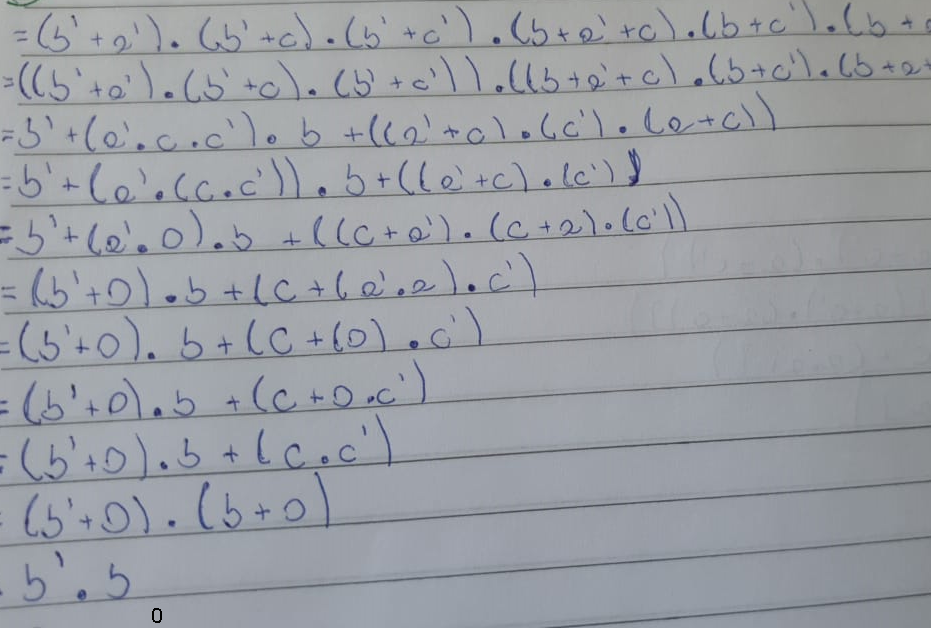 =(b'+a').(b'+c).(b'+c').(b+a'+c).(b+c').(b+
=((b'+a').(b'+c).(b'+c')).((b+a'+c).(b+c').(b+a+
=b'+(a'.c.c').b+((a'+c).(c').(a+c))
=b'+(a'.(c.c')).b+((a'+c).(c')
=b'+(a'.0).b+((c+a').(c+a).(c'))
=(b'+0).b+(c+(a'.a).c')
=(b'+0).b+(c+(0).c')
=(b'+0).b+(c+0.c')
=(b'+0).b+(c.c')
(b'+0).(b+0)
b'.b
0